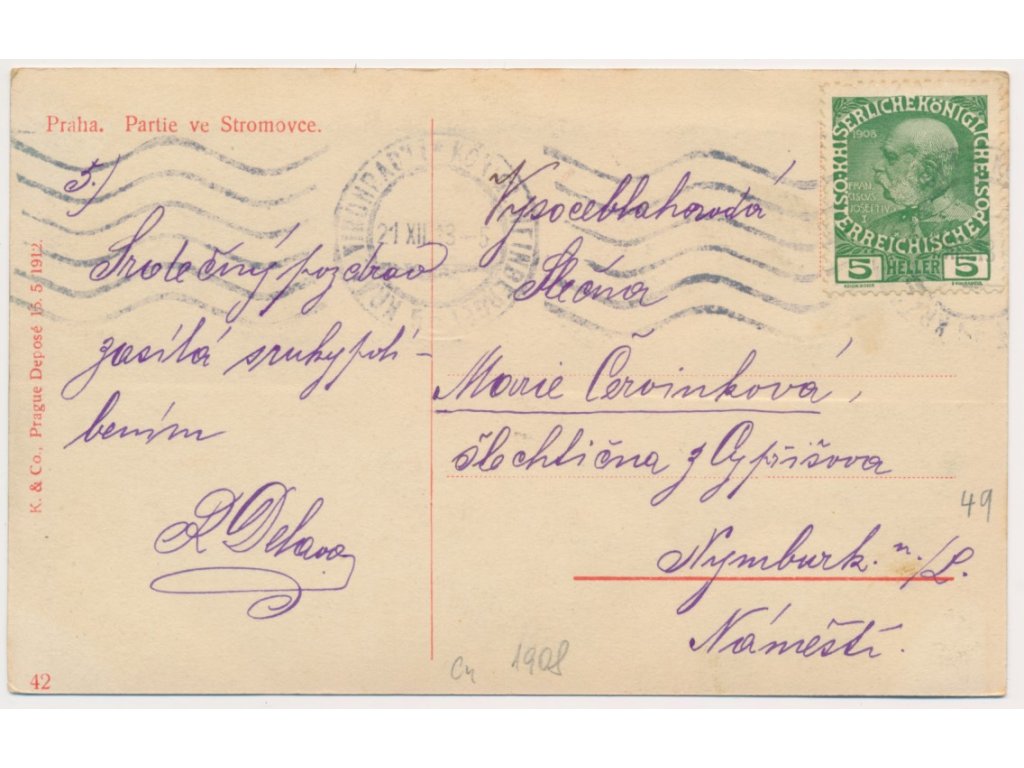 Praha. Partie ve Stromovce.
5.)
Srdečný pozdrav
zasílá s ruky políbením
R Delavo
K. & Co., Prague Deposé 15. 5 1912.
42
21 XII 13
Vysoceblahorodá
Slečna
Marie Červinková,
šlechtična z Cypřišova
Nymburk. n./L.
Náměstí.
49
1908
KAISERLICHE KÖNIGLICHE POST
ÖSTERREICHISCHE
1908
FRAN
CISCVS
IOSEF I
5 HELLER 5